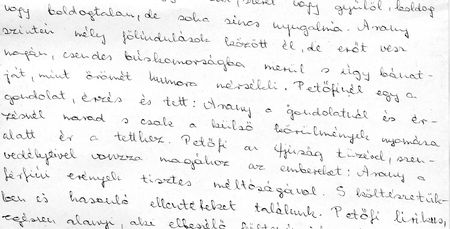 vagy boldogtalan, de soha sincs nyugalma. Arany
szintén mély fölindulások között él, de erőt vesz
magán, csendes búskomorságba merül s úgy bánat-
ját, mint örömét humora mérsékli. Petőfinél egy a
gondolat, érzés és tett: Arany a gondolatnál és ér-
zésnél marad s csak a külső körülmények nyomása
alatt ér a tetthez. Petőfi az ifjúság tüzével, szen-
vedélyével vonzza magához az embereket: Arany a
férfiúi erények tisztes méltóságával. S költészetük-
ben is hasonló ellentéteket találunk. Petőfi lirikus,
egészen alanyi, aki elbeszélő